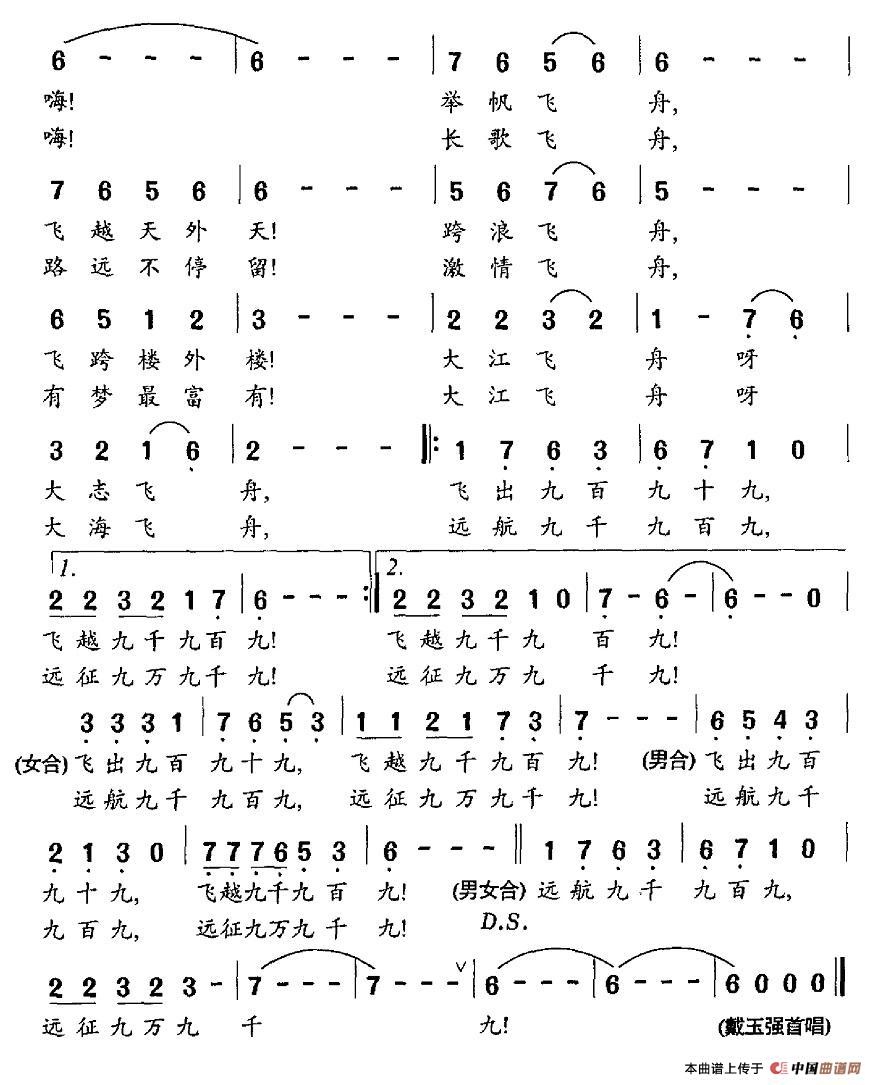 6 - - - | 6 - - - | 7 6 5 6 | 6 - - - |
嗨! 举帆飞舟,
嗨! 长歌飞舟,
7 6 5 6 | 6 - - - | 5 6 7 6 | 5 - - - |
飞越天外天! 跨浪飞舟,
路远不停留! 激情飞舟,
6 5 1 2 | 3 - - - | 2 2 3 2 | 1 - 7 6 |
飞跨楼外楼! 大江飞舟呀
有梦最富有! 大江飞舟呀
3 2 1 6 | 2 - - - ‖: 1 7 6 3 | 6 7 1 0 |
大志飞舟, 飞出九百九十九,
大海飞舟, 远航九千九百九,
1. 2.
2 2 3 2 1 7 | 6 - - - :‖ 2 2 3 2 1 0 | 7 - 6 - | 6 - - 0 |
飞越九千九百九! 飞越九千九百九!
远征九万九千九! 远征九万九千九!
3 3 3 1 | 7 6 5 3 | 1 1 2 1 7 3 | 7 - - - | 6 5 4 3 |
(女合)飞出九百九十九, 飞越九千九百九! (男合)飞出九百
远航九千九百九, 远征九万九千九! 远航九千
2 1 3 0 | 7 7 7 6 5 3 | 6 - - - ‖ 1 7 6 3 | 6 7 1 0 |
九十九, 飞越九千九百九! (男女合)远航九千九百九,
九百九, 远征九万九千九! D.S.
2 2 3 2 3 - | 7 - - - | 7 - - - ∨ | 6 - - - | 6 - - - | 6 0 0 0 ‖
远征九万九千九! (戴玉强首唱)
本曲谱上传于 中国曲谱网